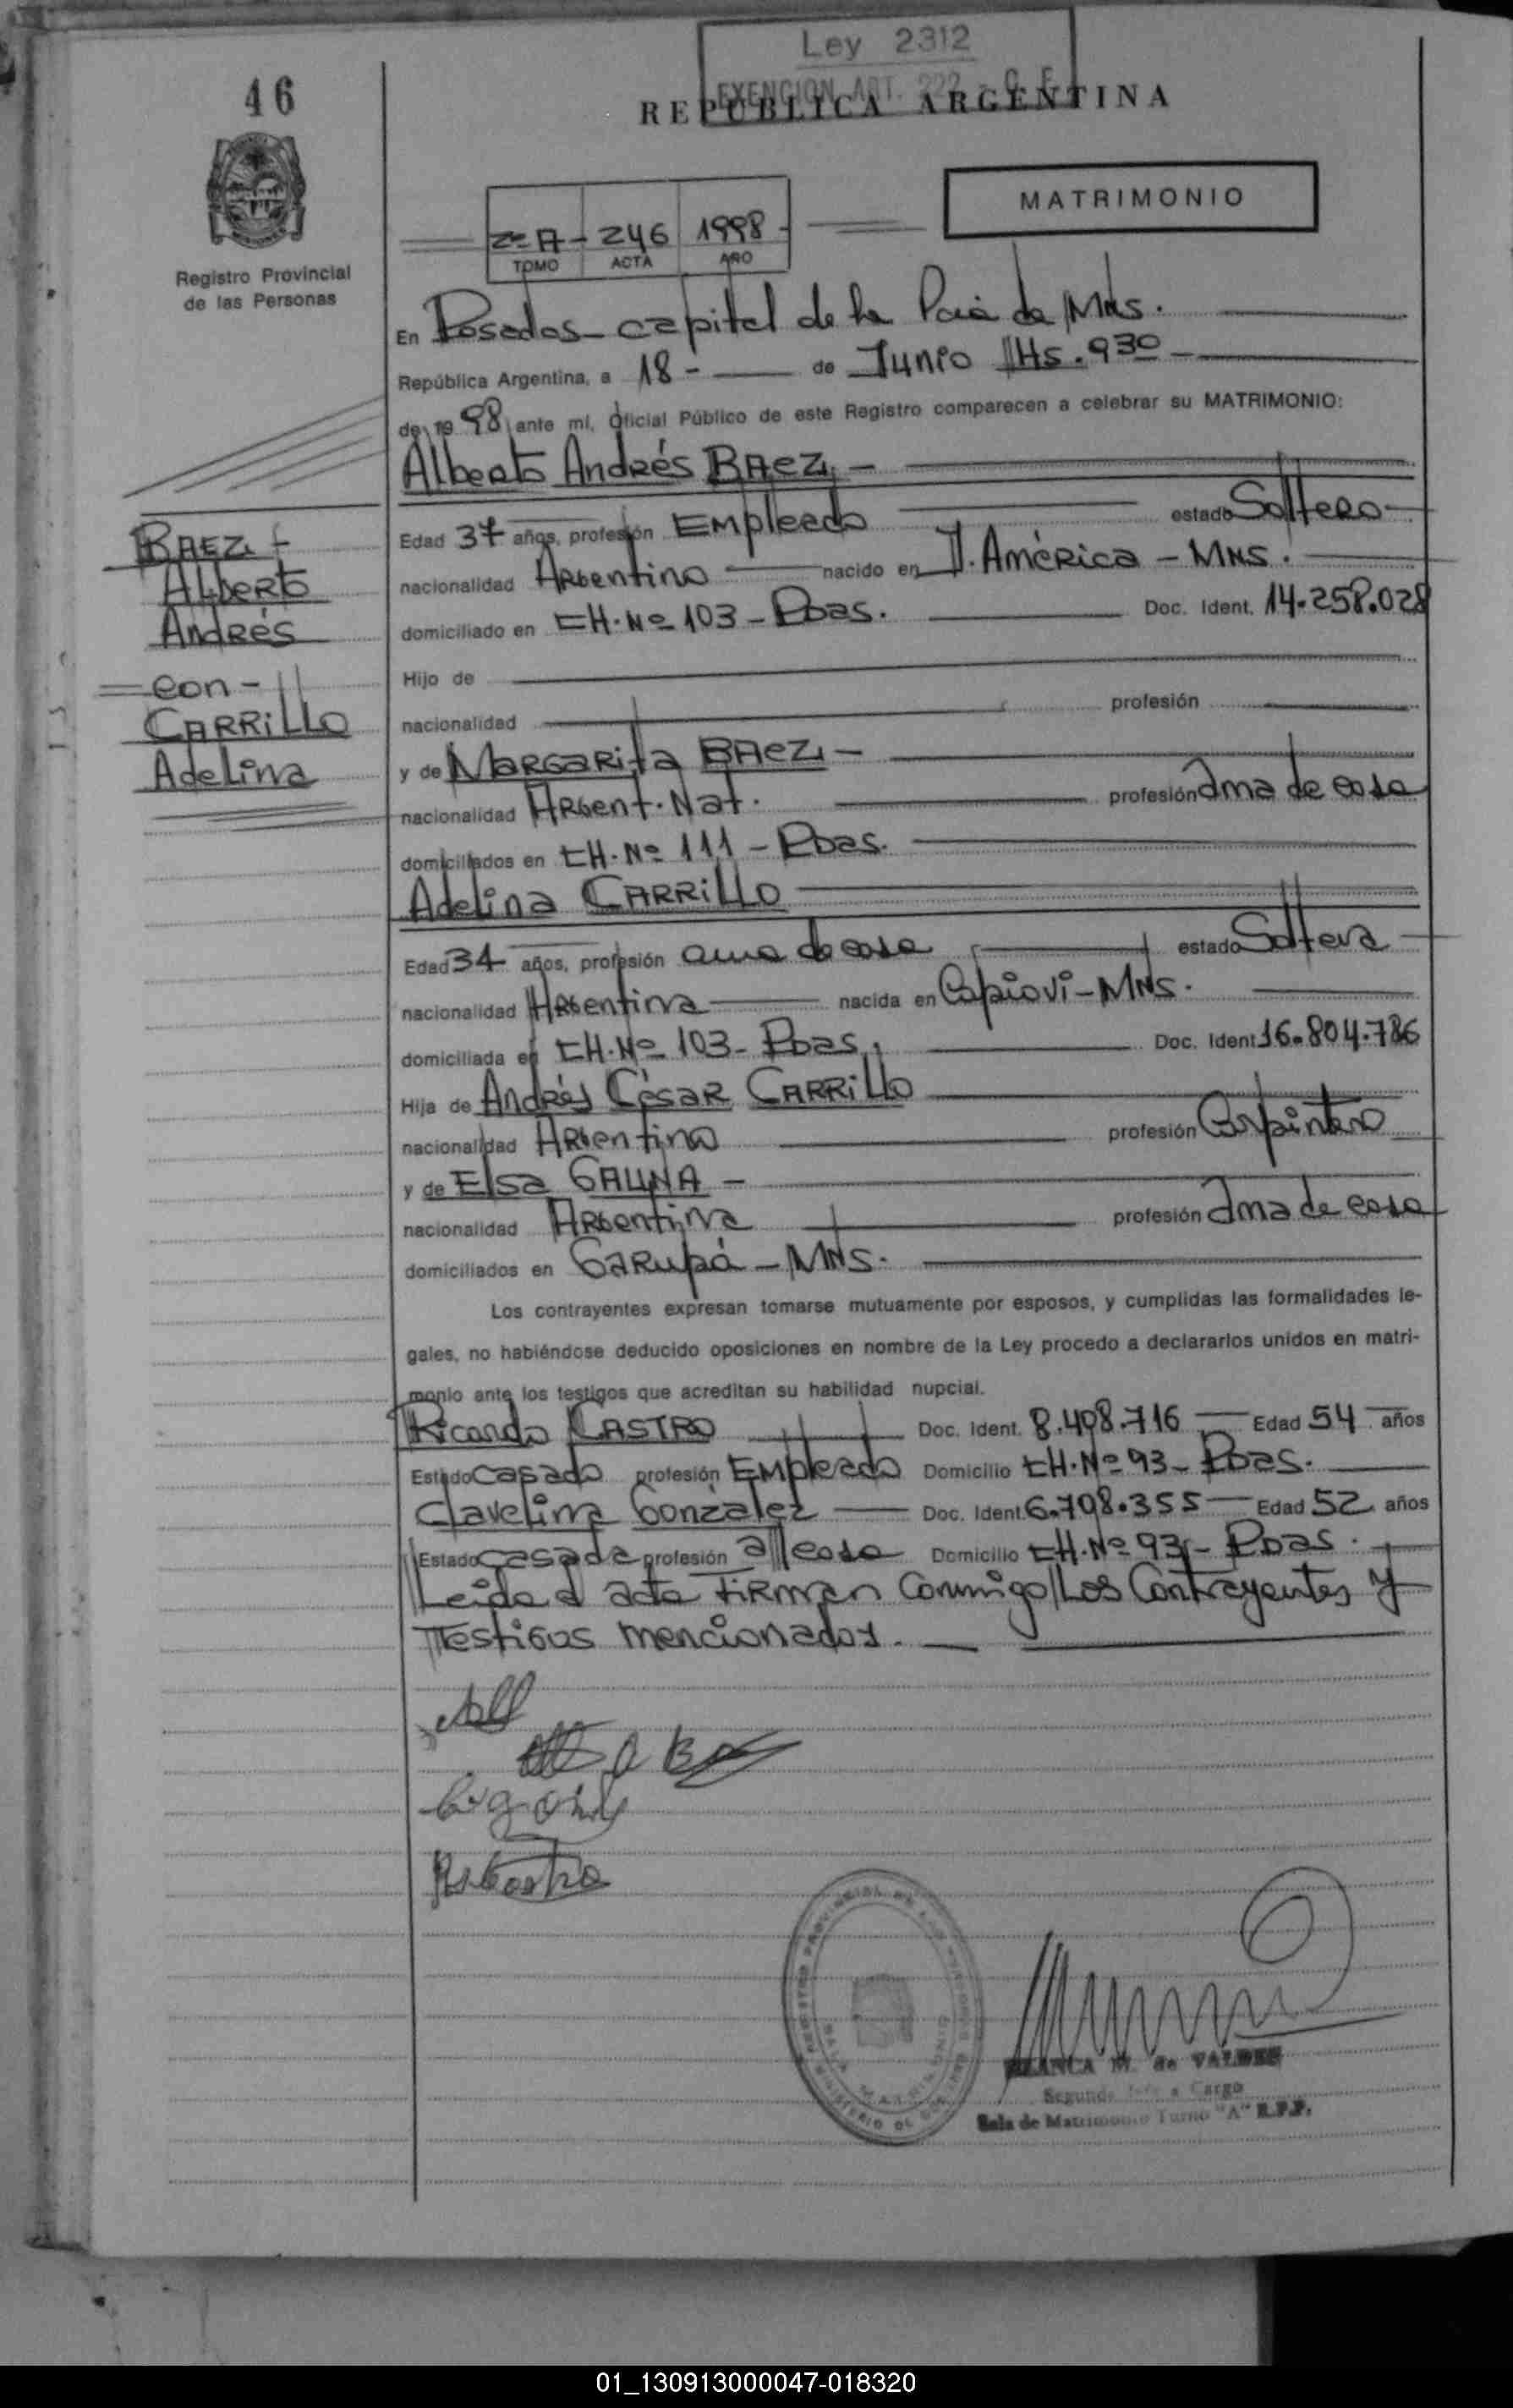 Ley 2312
EXENCION ART. 222 - C. F.
46
REPUBLICA ARGENTINA
MATRIMONIO
2º A - 246 1998 -
TOMO ACTA AÑO
Registro Provincial
de las Personas
En Posadas - capital de la Pcia de Mns.
República Argentina, a 18 - de Junio Hs. 930
de 19 98 ante mi, Oficial Público de este Registro comparecen a celebrar su MATRIMONIO:
Alberto Andrés BAEZ -
Edad 37 años, profesión Empleado estado Soltero
nacionalidad Argentina nacido en J. América - Mns.
domiciliado en CH. Nº 103 - Pdas. Doc. Ident. 14.258.028
Hijo de
nacionalidad profesión
y de MARGARITA BAEZ -
nacionalidad Argent. Nat. profesión Ama de casa
domiciliados en CH. Nº 111 - Pdas.
BAEZ -
Alberto
Andrés
- con -
CARRILLO
Adelina
Adelina CARRILLO
Edad 34 años, profesión ama de casa estado Soltera
nacionalidad Argentina nacida en Capiovi - Mns.
domiciliada en CH. Nº 103 - Pdas. Doc. Ident 16.804.786
Hija de Andrés César CARRILLO
nacionalidad Argentina profesión Carpintero
y de Elsa GAUNA -
nacionalidad Argentina profesión Ama de casa
domiciliados en Garupá - Mns.
Los contrayentes expresan tomarse mutuamente por esposos, y cumplidas las formalidades le-
gales, no habiéndose deducido oposiciones en nombre de la Ley procedo a declararlos unidos en matri-
monio ante los testigos que acreditan su habilidad nupcial.
Ricardo CASTRO Doc. Ident. 8.408.716 Edad 54 años
Estado casado profesión Empleado Domicilio CH. Nº 93 - Pdas.
Clavelina González Doc. Ident 6.708.355 Edad 52 años
Estado casada profesión a/casa Domicilio CH. Nº 93 - Pdas.
Leida el acta firman Conmigo Los Contrayentes y
Testigos mencionados.
BLANCA M. de VALDES
Segundo Jefe a Cargo
Sala de Matrimonio Turno "A" R.P.P.
SALA MATRIMONIO
01_130913000047-018320